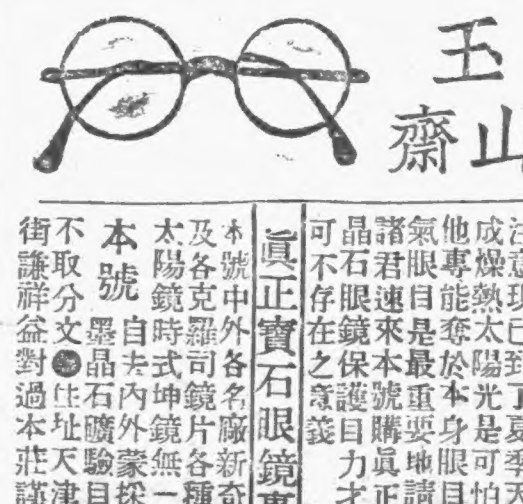 玉山
齋
注意現已到了夏季天
成燥熱太陽光是可怕
他專能奪於本身眼目
氣眼目是最重要地請
諸君速來本號購眞正
晶石眼鏡保護目力才
可不存在之意義
眞正寶石眼鏡專
本號中外各名廠新奇
及各克羅司鏡片各種
太陽鏡時式坤鏡無一
本號自去內外蒙採
墨晶石礦驗目
不取分文●住址天津
街謙祥益對過本莊謹